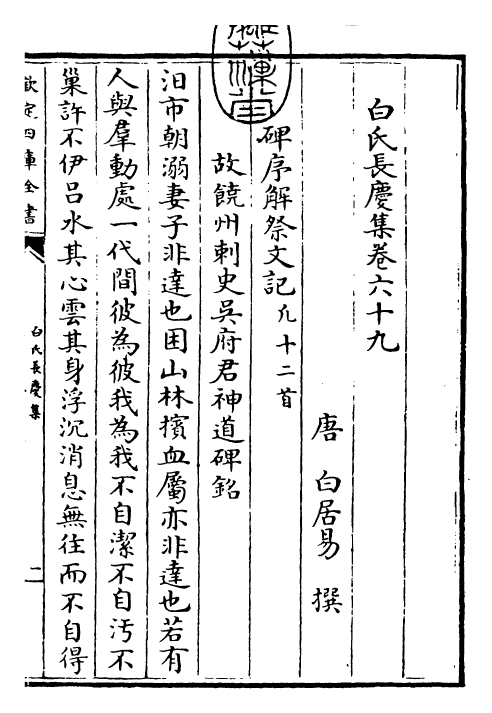 白氏長慶集卷六十九
唐 白居易 撰
碑序解祭文記凡十二首
故饒州刺史吳府君神道碑銘
汩市朝溺妻子非達也困山林擯血屬亦非達也若有
人與羣動處一代間彼為彼我為我不自潔不自汚不
巢許不伊呂水其心雲其身浮沉消息無往而不自得
欽定四庫全書
白氏長慶集
二